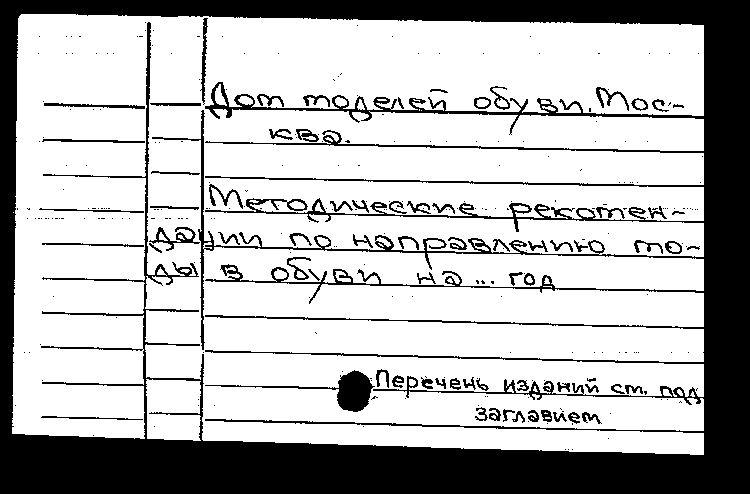 Дом моделей обуви. Мос-
ква.
Методические рекомен-
дации по направлению мо-
ды в обуви на ... год
Перечень изданий см. под
заглавием